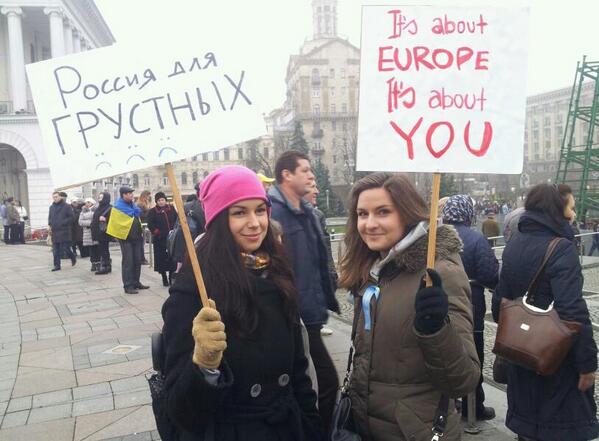 Россия для
ГРУСТНЫХ
It's about
EUROPE
It's about
YOU